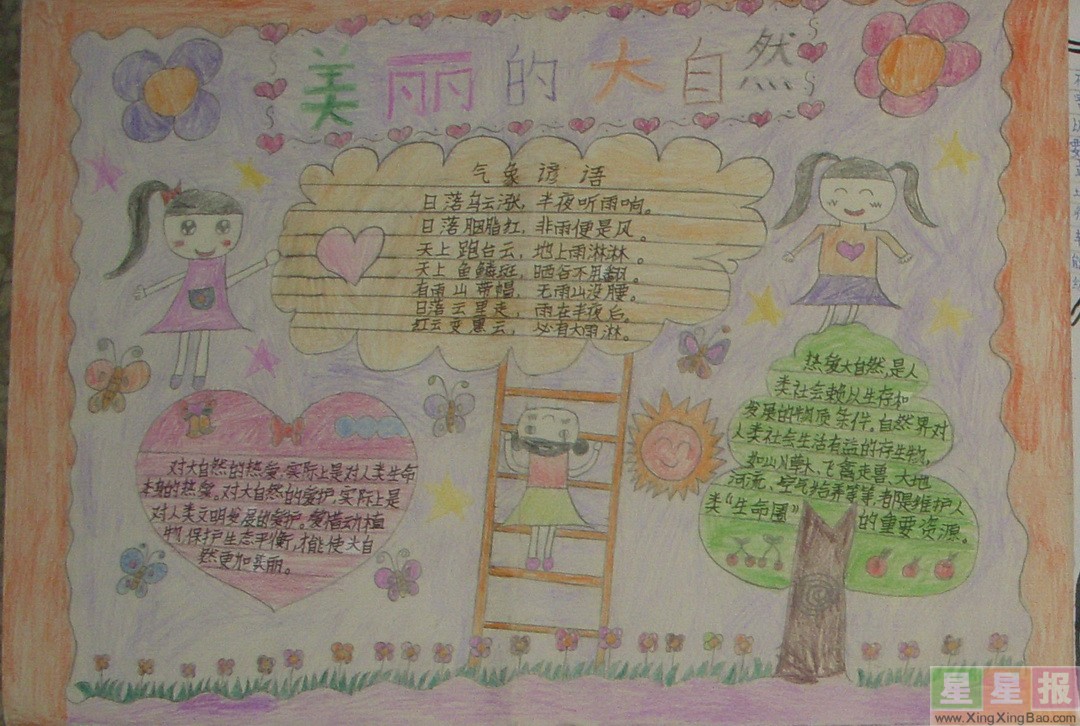 美丽的大自然
气象谚语
日落乌云涨，半夜听雨响。
日落胭脂红，非雨便是风。
天上跑台云，地上雨淋淋。
天上鱼鳞斑，晒谷不用翻。
有雨山带帽，无雨山没腰。
日落云里走，雨在半夜后。
红云变黑云，必有大雨淋。
对大自然的热爱，实际上是对人类生命
本身的热爱。对大自然的爱护，实际上是
对人类文明发展的爱护。爱惜动植
物，保护生态平衡，才能使大自
然更加美丽。
热爱大自然，是人
类社会赖以生存和
发展的物质条件。自然界对
人类社会生活有益的存生物，
如山川草木、飞禽走兽、大地
河流、空气
等等，都是维护人
类“生命圈”的重要资源。
星星报
www.XingXingBao.com